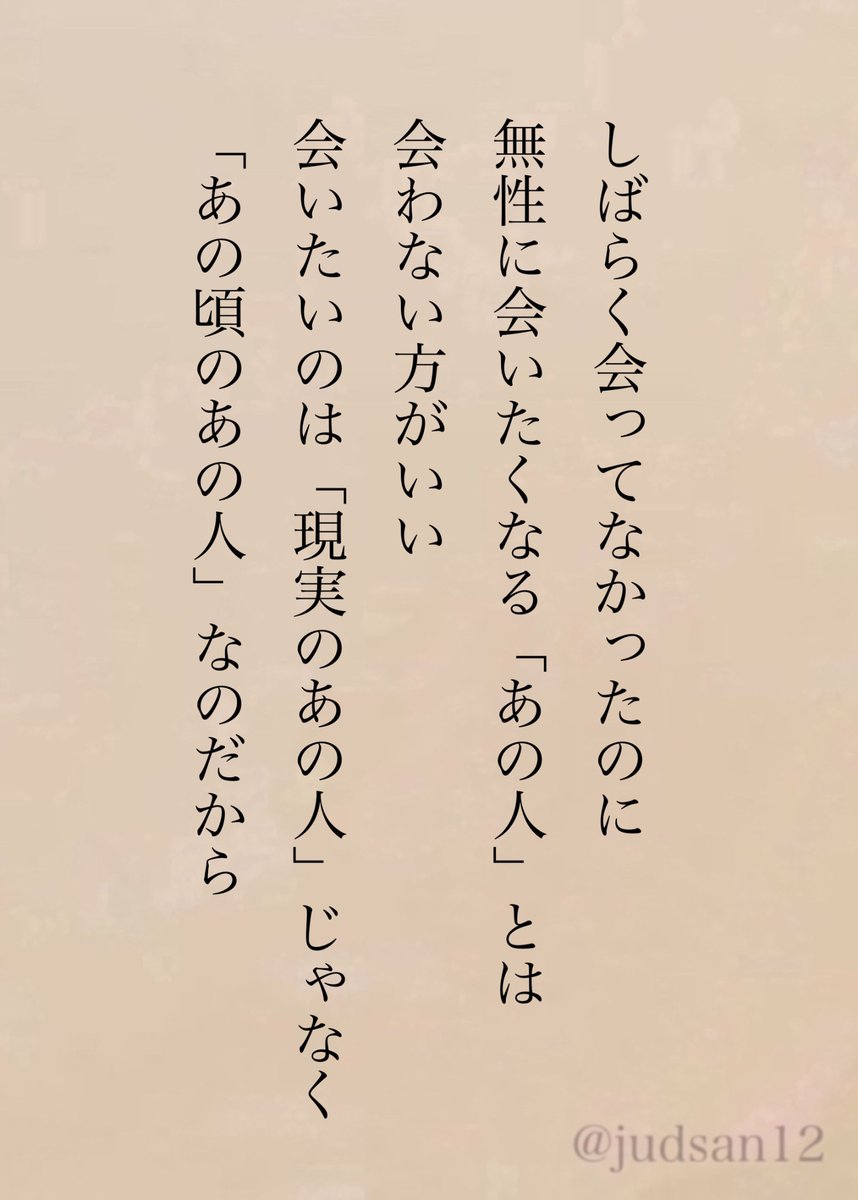 しばらく会ってなかったのに
無性に会いたくなる「あの人」とは
会わない方がいい
会いたいのは「現実のあの人」じゃなく
「あの頃のあの人」なのだから
@judsan12